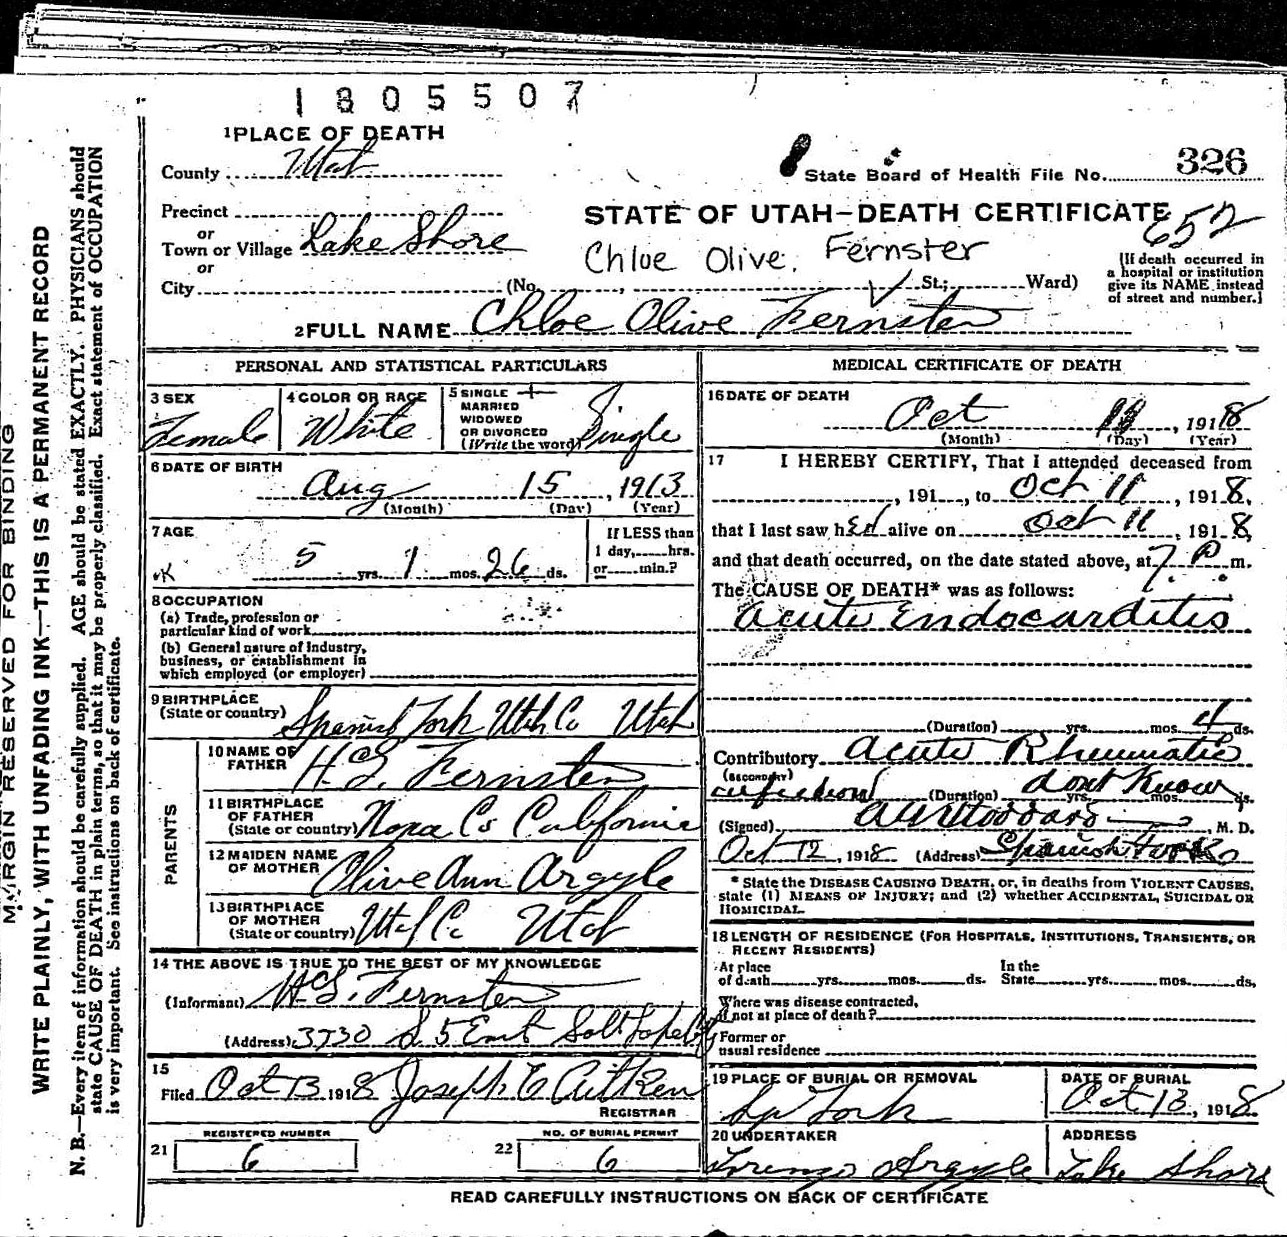 1805507
1 PLACE OF DEATH
County Utah
State Board of Health File No. 326
Precinct
or
Town or Village Lake Shore
or
City (No. , St.; Ward)
STATE OF UTAH—DEATH CERTIFICATE 652
Chloe Olive Fernster
[If death occurred in
a hospital or institution
give its NAME instead
of street and number.]
2 FULL NAME Chloe Olive Fernsten
PERSONAL AND STATISTICAL PARTICULARS
3 SEX
Female
4 COLOR OR RACE
White
5 SINGLE
MARRIED
WIDOWED
OR DIVORCED
(Write the word) Single
6 DATE OF BIRTH
Aug 15, 1913
(Month) (Day) (Year)
7 AGE
OK 5 yrs. 1 mos. 26 ds.
If LESS than
1 day, hrs.
or min.?
8 OCCUPATION
(a) Trade, profession or
particular kind of work
(b) General nature of industry,
business, or establishment in
which employed (or employer)
9 BIRTHPLACE
(State or country) Spanish Fork Utah Co Utah
PARENTS
10 NAME OF
FATHER H. S. Fernsten
11 BIRTHPLACE
OF FATHER
(State or country) Napa Co California
12 MAIDEN NAME
OF MOTHER Olive Ann Argyle
13 BIRTHPLACE
OF MOTHER
(State or country) Utah Co Utah
14 THE ABOVE IS TRUE TO THE BEST OF MY KNOWLEDGE
(Informant) H. S. Fernsten
(Address) 3730 S 5 East Salt Lake City
15
Filed Oct 13 1918 Joseph E Aitken
REGISTRAR
REGISTERED NUMBER
21 6
NO. OF BURIAL PERMIT
22 6
MEDICAL CERTIFICATE OF DEATH
16 DATE OF DEATH
Oct 11, 1918
(Month) (Day) (Year)
17 I HEREBY CERTIFY, That I attended deceased from
, 191 , to Oct 11, 1918,
that I last saw her alive on Oct 11, 1918,
and that death occurred, on the date stated above, at 7 P. m.
The CAUSE OF DEATH* was as follows:
Acute Endocarditis
(Duration) yrs. mos. 4 ds.
Contributory Acute Rheumatic
(SECONDARY)
infection (Duration) dont Know yrs. mos. ds.
(Signed) , M. D.
Oct 12, 1918 (Address) Spanish Fork
* State the DISEASE CAUSING DEATH, or, in deaths from VIOLENT CAUSES,
state (1) MEANS OF INJURY; and (2) whether ACCIDENTAL, SUICIDAL OR
HOMICIDAL.
18 LENGTH OF RESIDENCE (FOR HOSPITALS, INSTITUTIONS, TRANSIENTS, OR
RECENT RESIDENTS)
At place
of death yrs. mos. ds.
In the
State yrs. mos. ds.
Where was disease contracted,
if not at place of death?
Former or
usual residence
19 PLACE OF BURIAL OR REMOVAL
Sp Fork
DATE OF BURIAL
Oct 13, 1918
20 UNDERTAKER
Lorenzo Argyle
ADDRESS
Lake Shore
READ CAREFULLY INSTRUCTIONS ON BACK OF CERTIFICATE
MARGIN RESERVED FOR BINDING
WRITE PLAINLY, WITH UNFADING INK—THIS IS A PERMANENT RECORD
N. B.—Every item of information should be carefully supplied. AGE should be stated EXACTLY. PHYSICIANS should
state CAUSE OF DEATH in plain terms, so that it may be properly classified. Exact statement of OCCUPATION
is very important. See instructions on back of certificate.